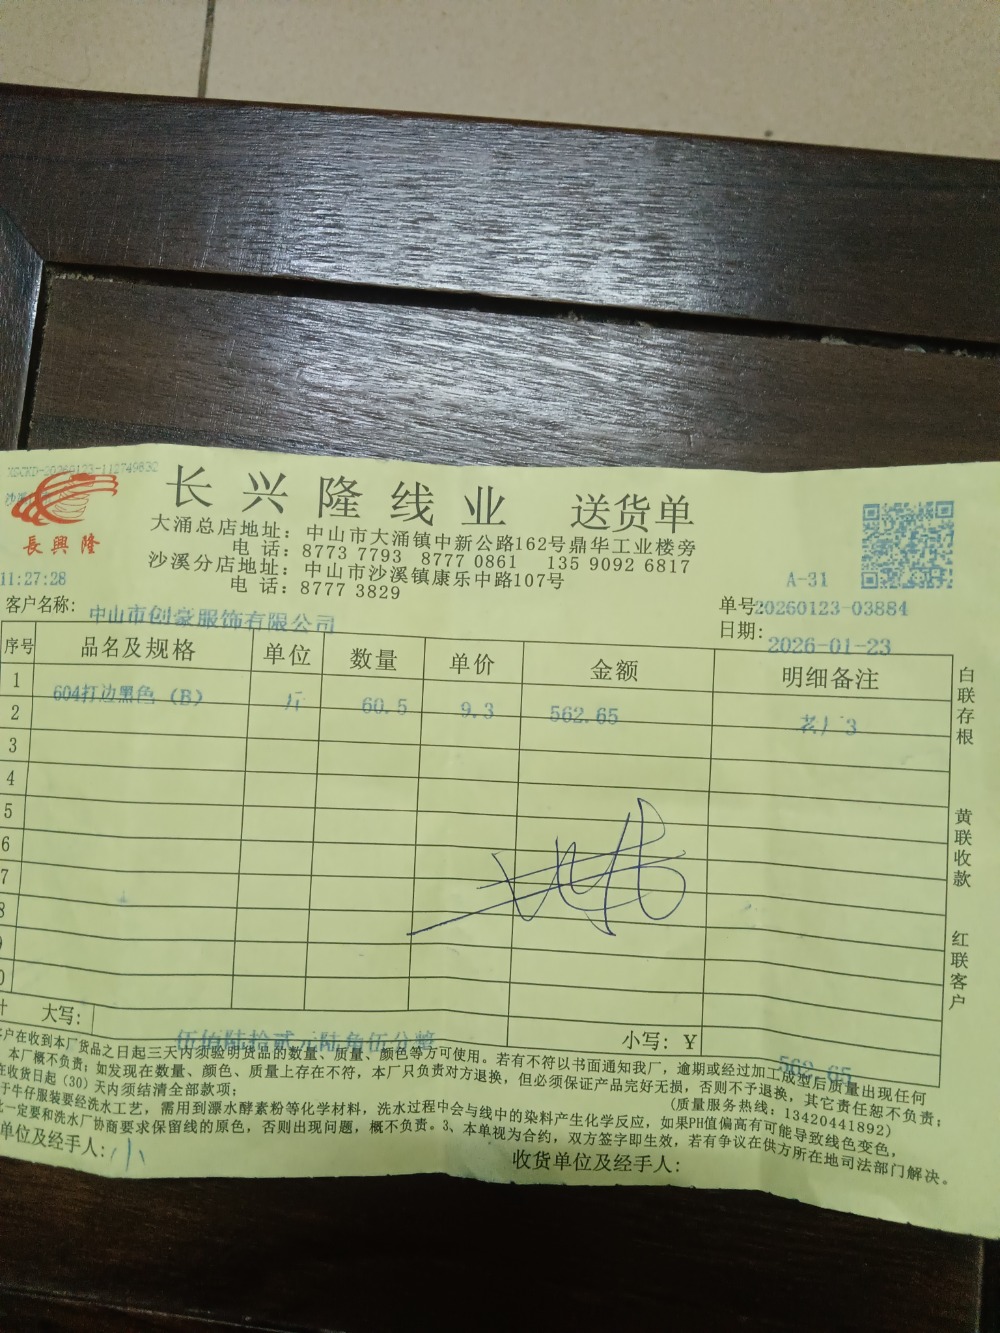 XDCKD-20260123-112749832
沙溪
長興隆
长兴隆线业 送货单
大涌总店地址：中山市大涌镇中新公路162号鼎华工业楼旁
电 话：8773 7793 8777 0861 135 9092 6817
沙溪分店地址：中山市沙溪镇康乐中路107号
电 话：8777 3829
11:27:28
A-31
客户名称：中山市创豪服饰有限公司
单号20260123-03884
日期：2026-01-23
序号 品名及规格 单位 数量 单价 金额 明细备注
1 604打边黑色（B） 斤 60.5 9.3 562.65
2
3
4
5
6
7
8
大写：伍佰陆拾贰元陆角伍分整 小写：￥562.65
白联存根
黄联收款
红联客户
户在收到本厂货品之日起三天内须验明货品的数量、质量、颜色等方可使用。若有不符以书面通知我厂，逾期或经过加工成型后质量出现任何
本厂概不负责；如发现在数量、颜色、质量上存在不符，本厂只负责对方退换，但必须保证产品完好无损，否则不予退换，其它责任恕不负责；
收货日起（30）天内须结清全部款项； (质量服务热线：13420441892)
于牛仔服装要经洗水工艺，需用到漂水酵素粉等化学材料，洗水过程中会与线中的染料产生化学反应，如果PH值偏高有可能导致线色变色，
一定要和洗水厂协商要求保留线的原色，否则出现问题，概不负责。3、本单视为合约，双方签字即生效，若有争议在供方所在地司法部门解决。
单位及经手人：
收货单位及经手人：